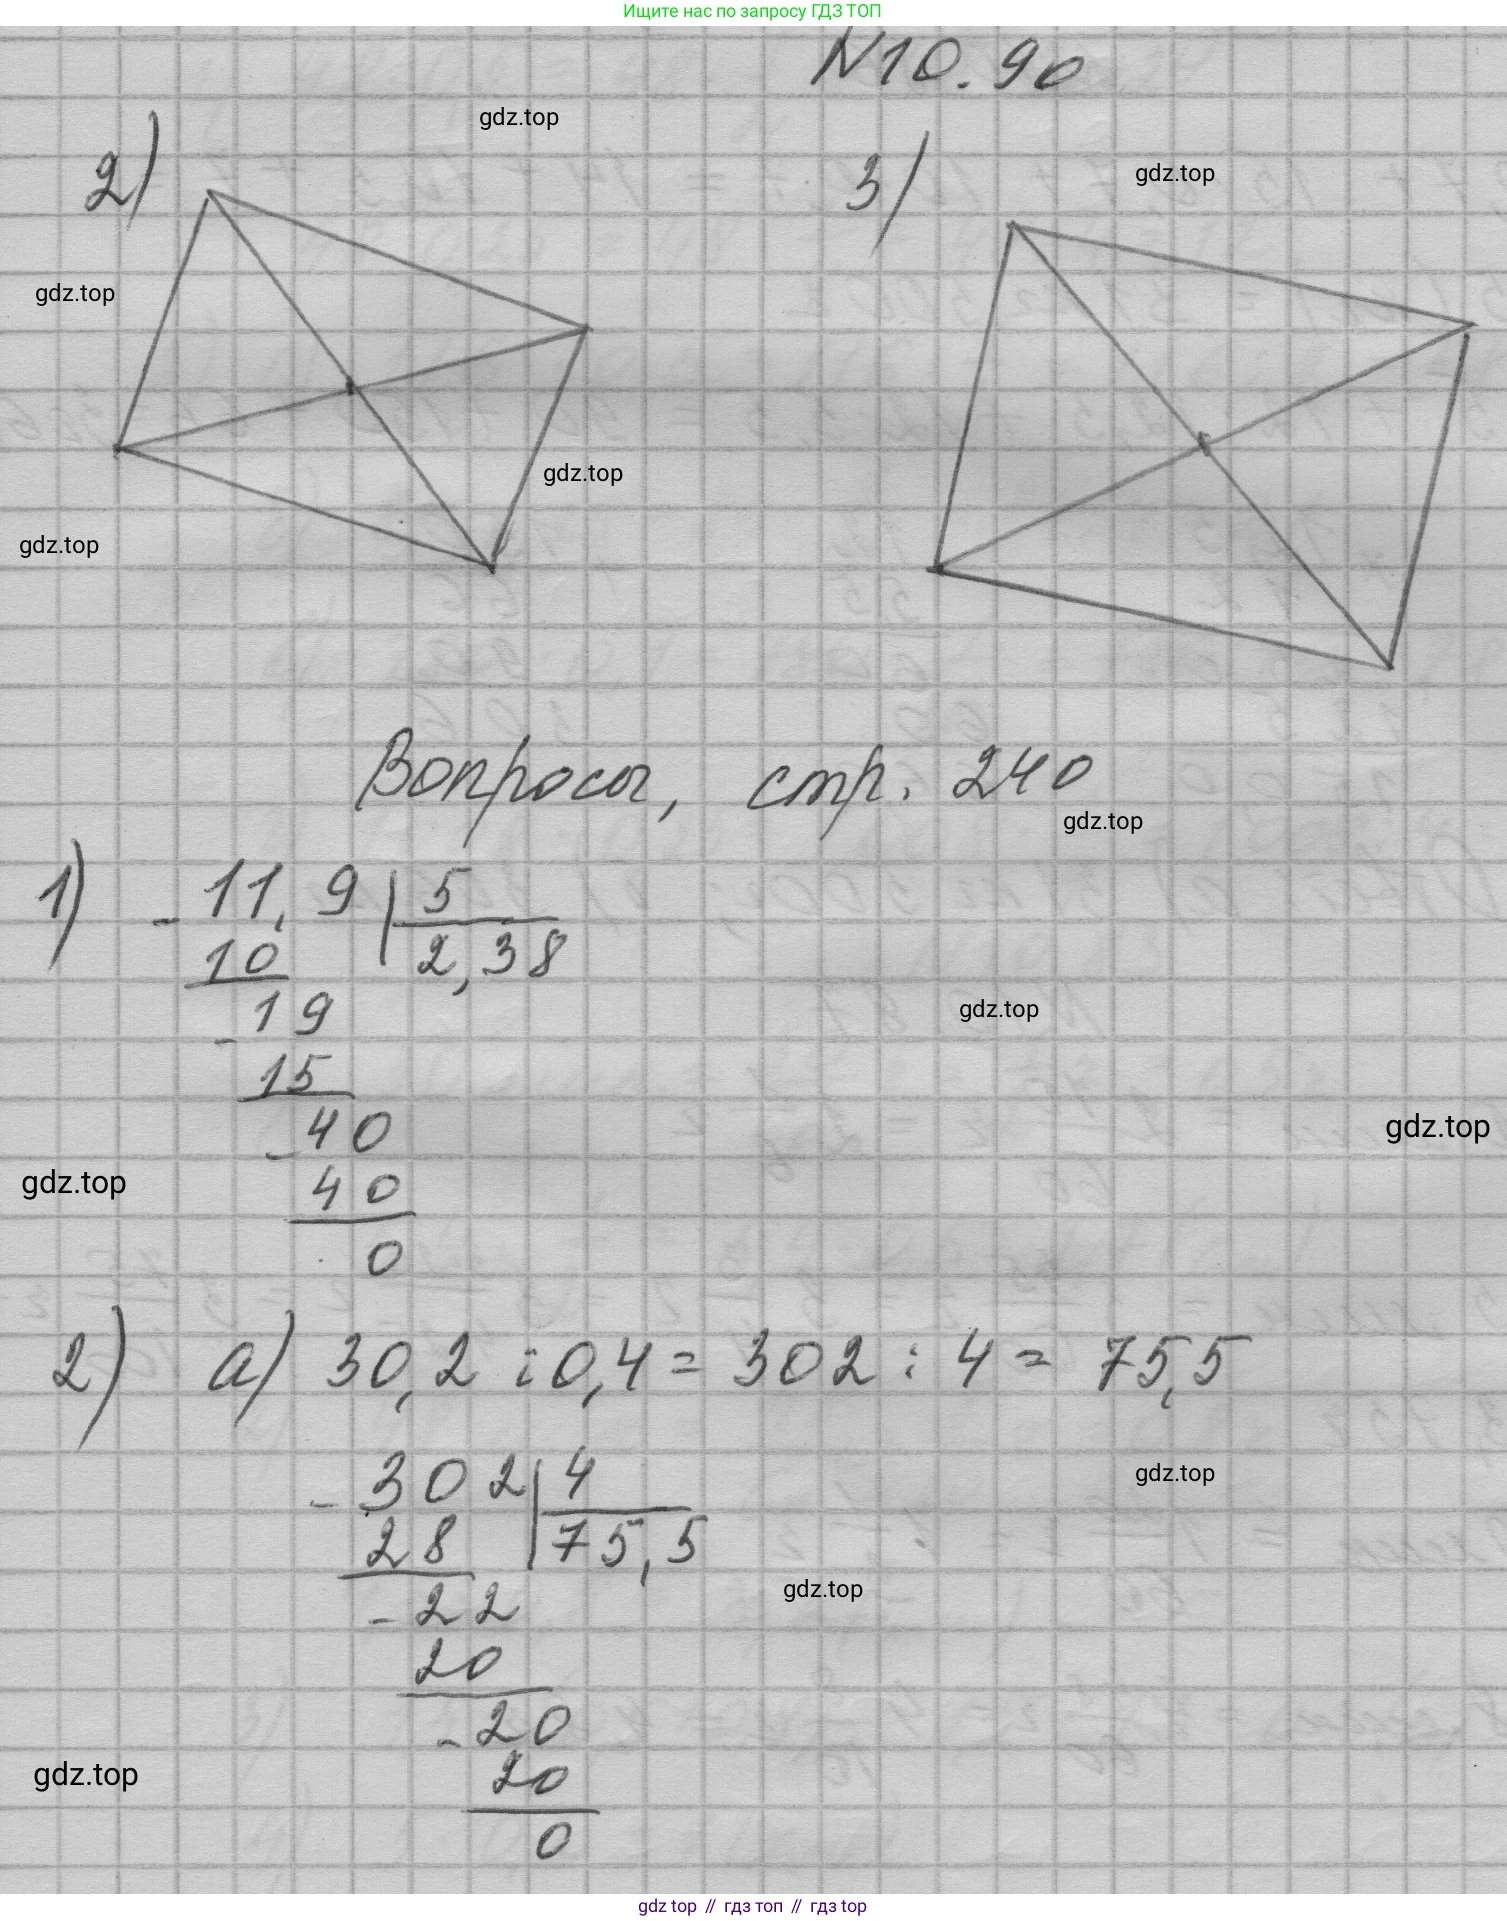 Ищите нас по запросу ГДЗ ТОП
N10.90
gdz.top
2)
3)
gdz.top
gdz.top
gdz.top
gdz.top
Вопросы, стр. 240
gdz.top
1) - 11,9 | 5
10 2,38
gdz.top
- 19
15
- 40
gdz.top
gdz.top
40
0
2) а) 30,2 : 0,4 = 302 : 4 = 75,5
- 302 | 4
gdz.top
28 75,5
gdz.top
- 22
20
- 20
gdz.top
20
0
gdz top // гдз топ // гдз top